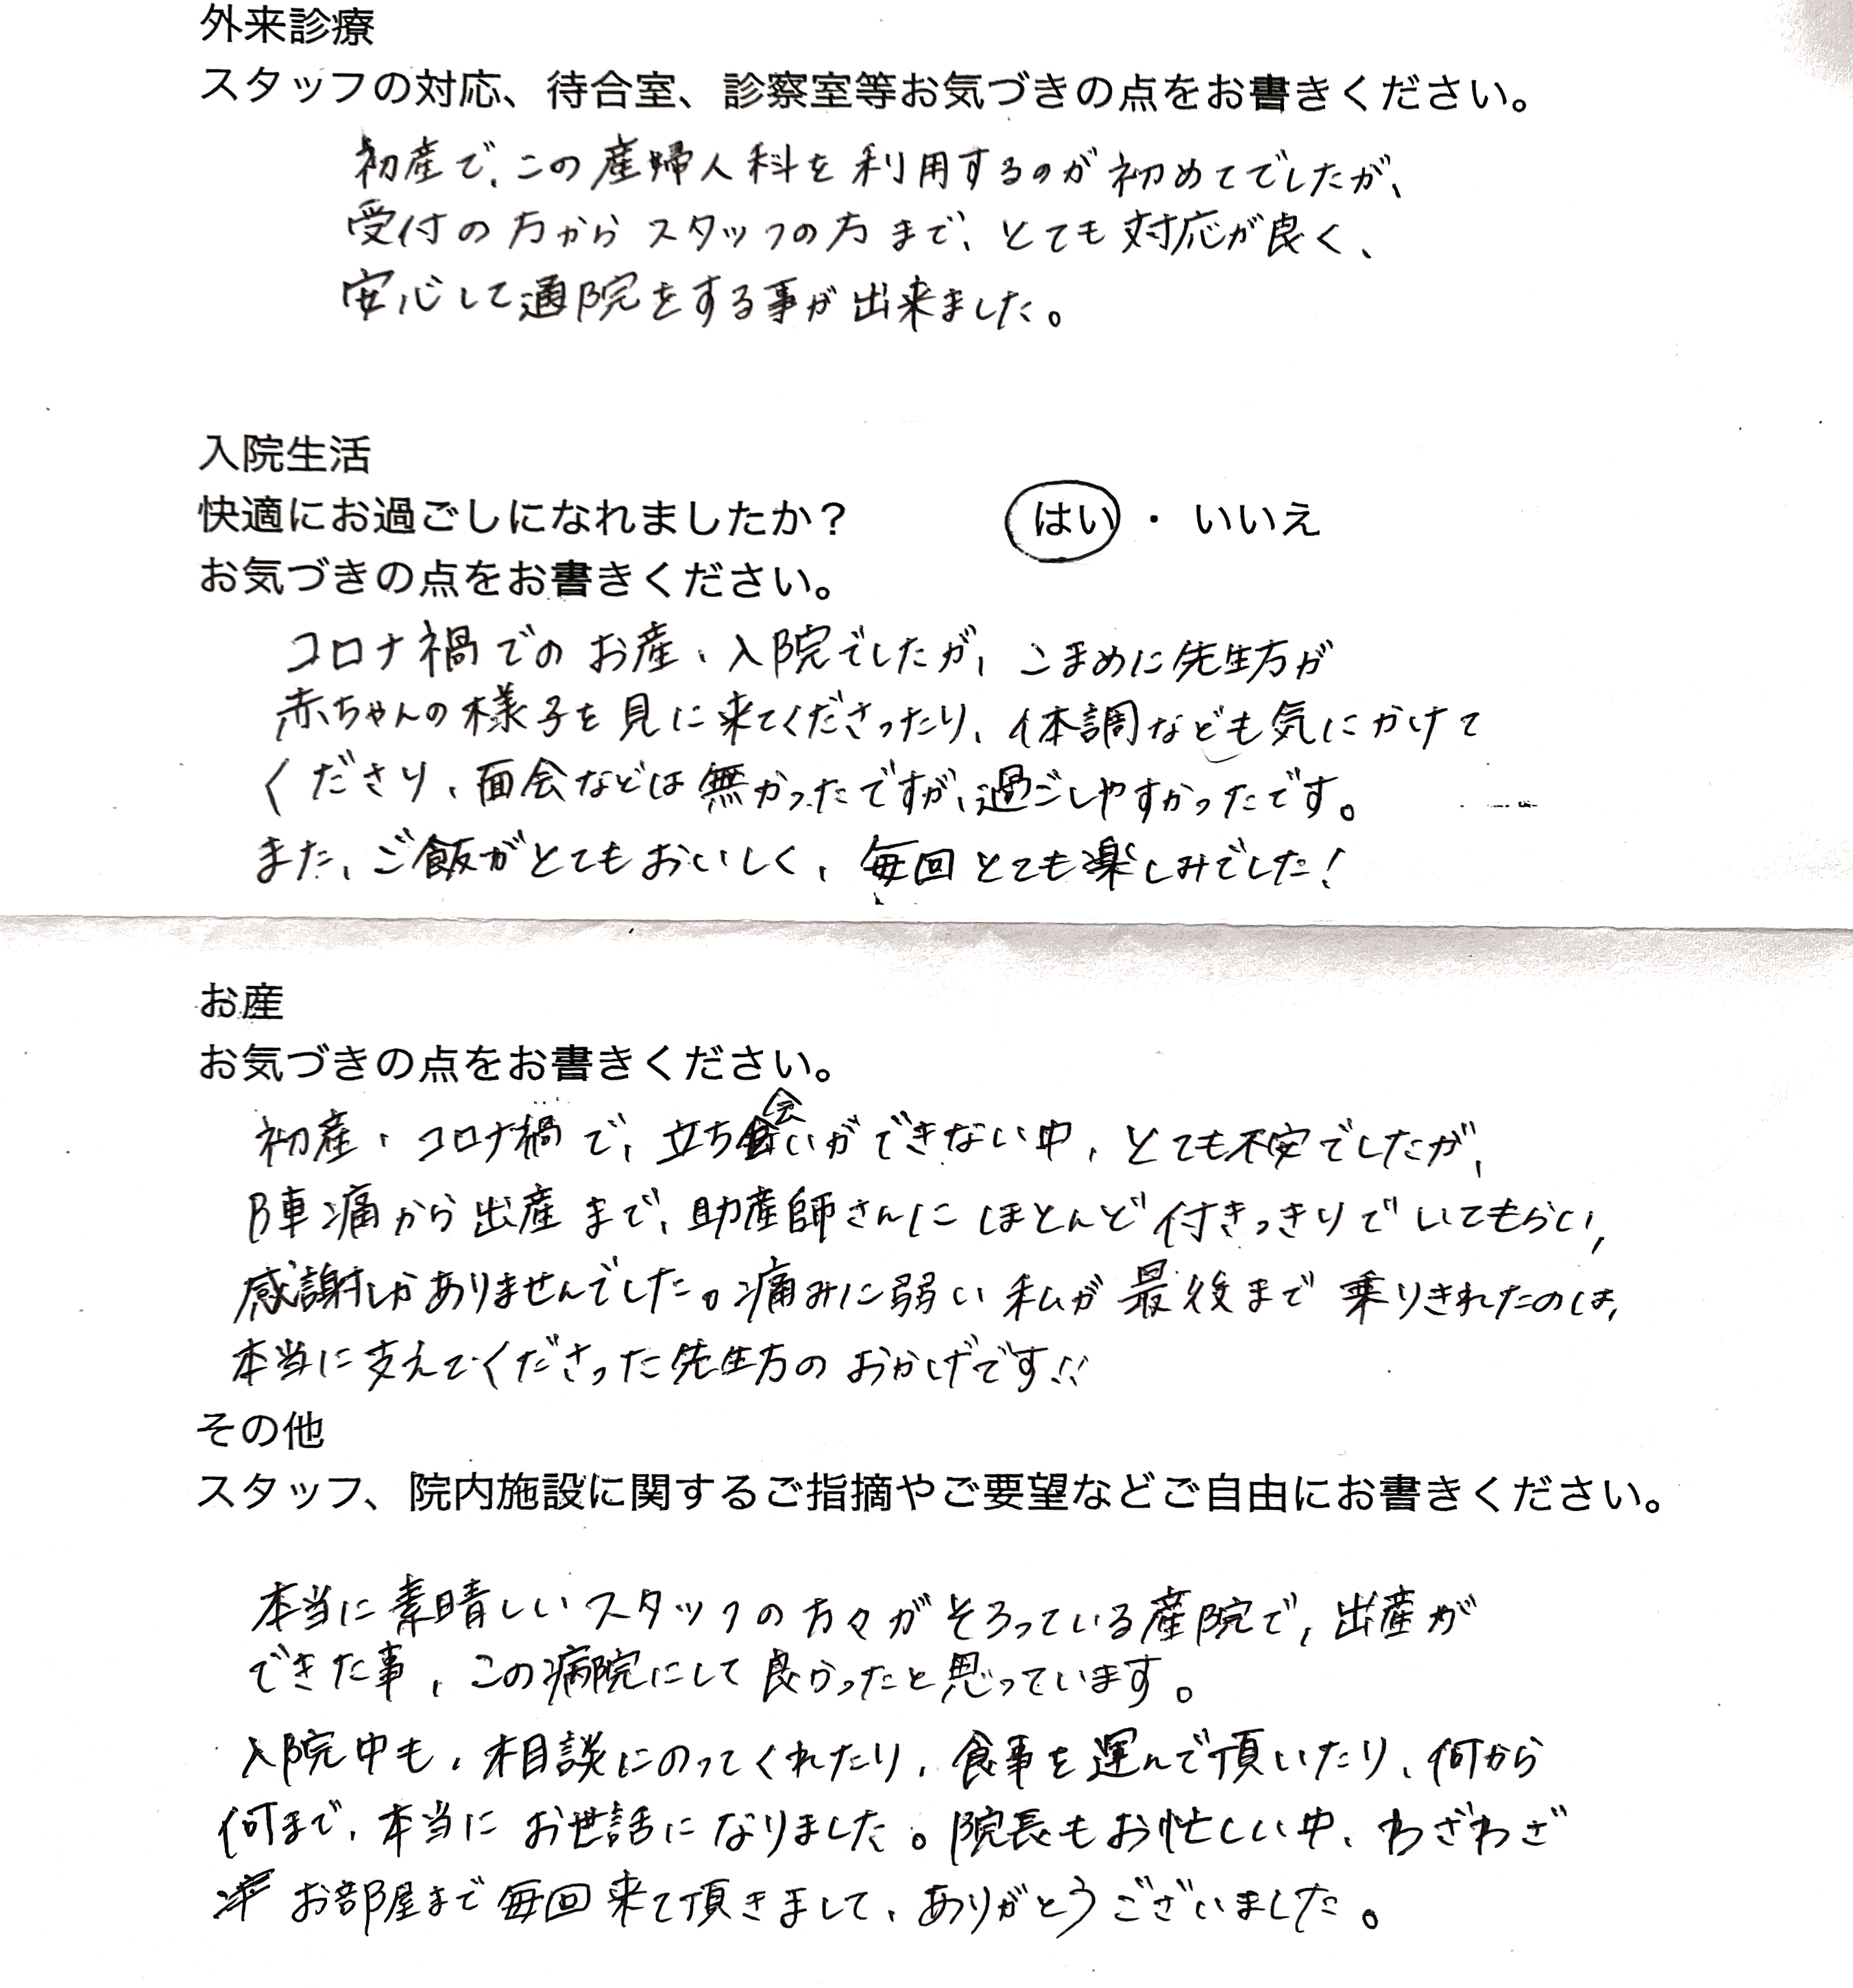 外来診療
スタッフの対応、待合室、診察室等お気づきの点をお書きください。
初産で、この産婦人科を利用するのが初めてでしたが、
受付の方からスタッフの方まで、とても対応が良く、
安心して通院をする事が出来ました。
入院生活
快適にお過ごしになれましたか？ はい ・ いいえ
お気づきの点をお書きください。
コロナ禍でのお産、入院でしたが、こまめに先生方が
赤ちゃんの様子を見に来てくださったり、体調なども気にかけて
くださり、面会などは無かったですが、過ごしやすかったです。
また、ご飯がとてもおいしく、毎回とても楽しみでした！
お産
お気づきの点をお書きください。
初産、コロナ禍で、立ち会いができない中、とても不安でしたが、
陣痛から出産まで、助産師さんにほとんど付きっきりでいてもらい、
感謝しかありませんでした。痛みに弱い私が最後まで乗りきれたのは、
本当に支えてくださった先生方のおかげです!!
その他
スタッフ、院内施設に関するご指摘やご要望などご自由にお書きください。
本当に素晴しいスタッフの方々がそろっている産院で、出産が
できた事、この病院にして良かったと思っています。
入院中も、相談にのってくれたり、食事を運んで頂いたり、何から
何まで、本当にお世話になりました。院長もお忙しい中、わざわざ
お部屋まで毎回来て頂きまして、ありがとうございました。